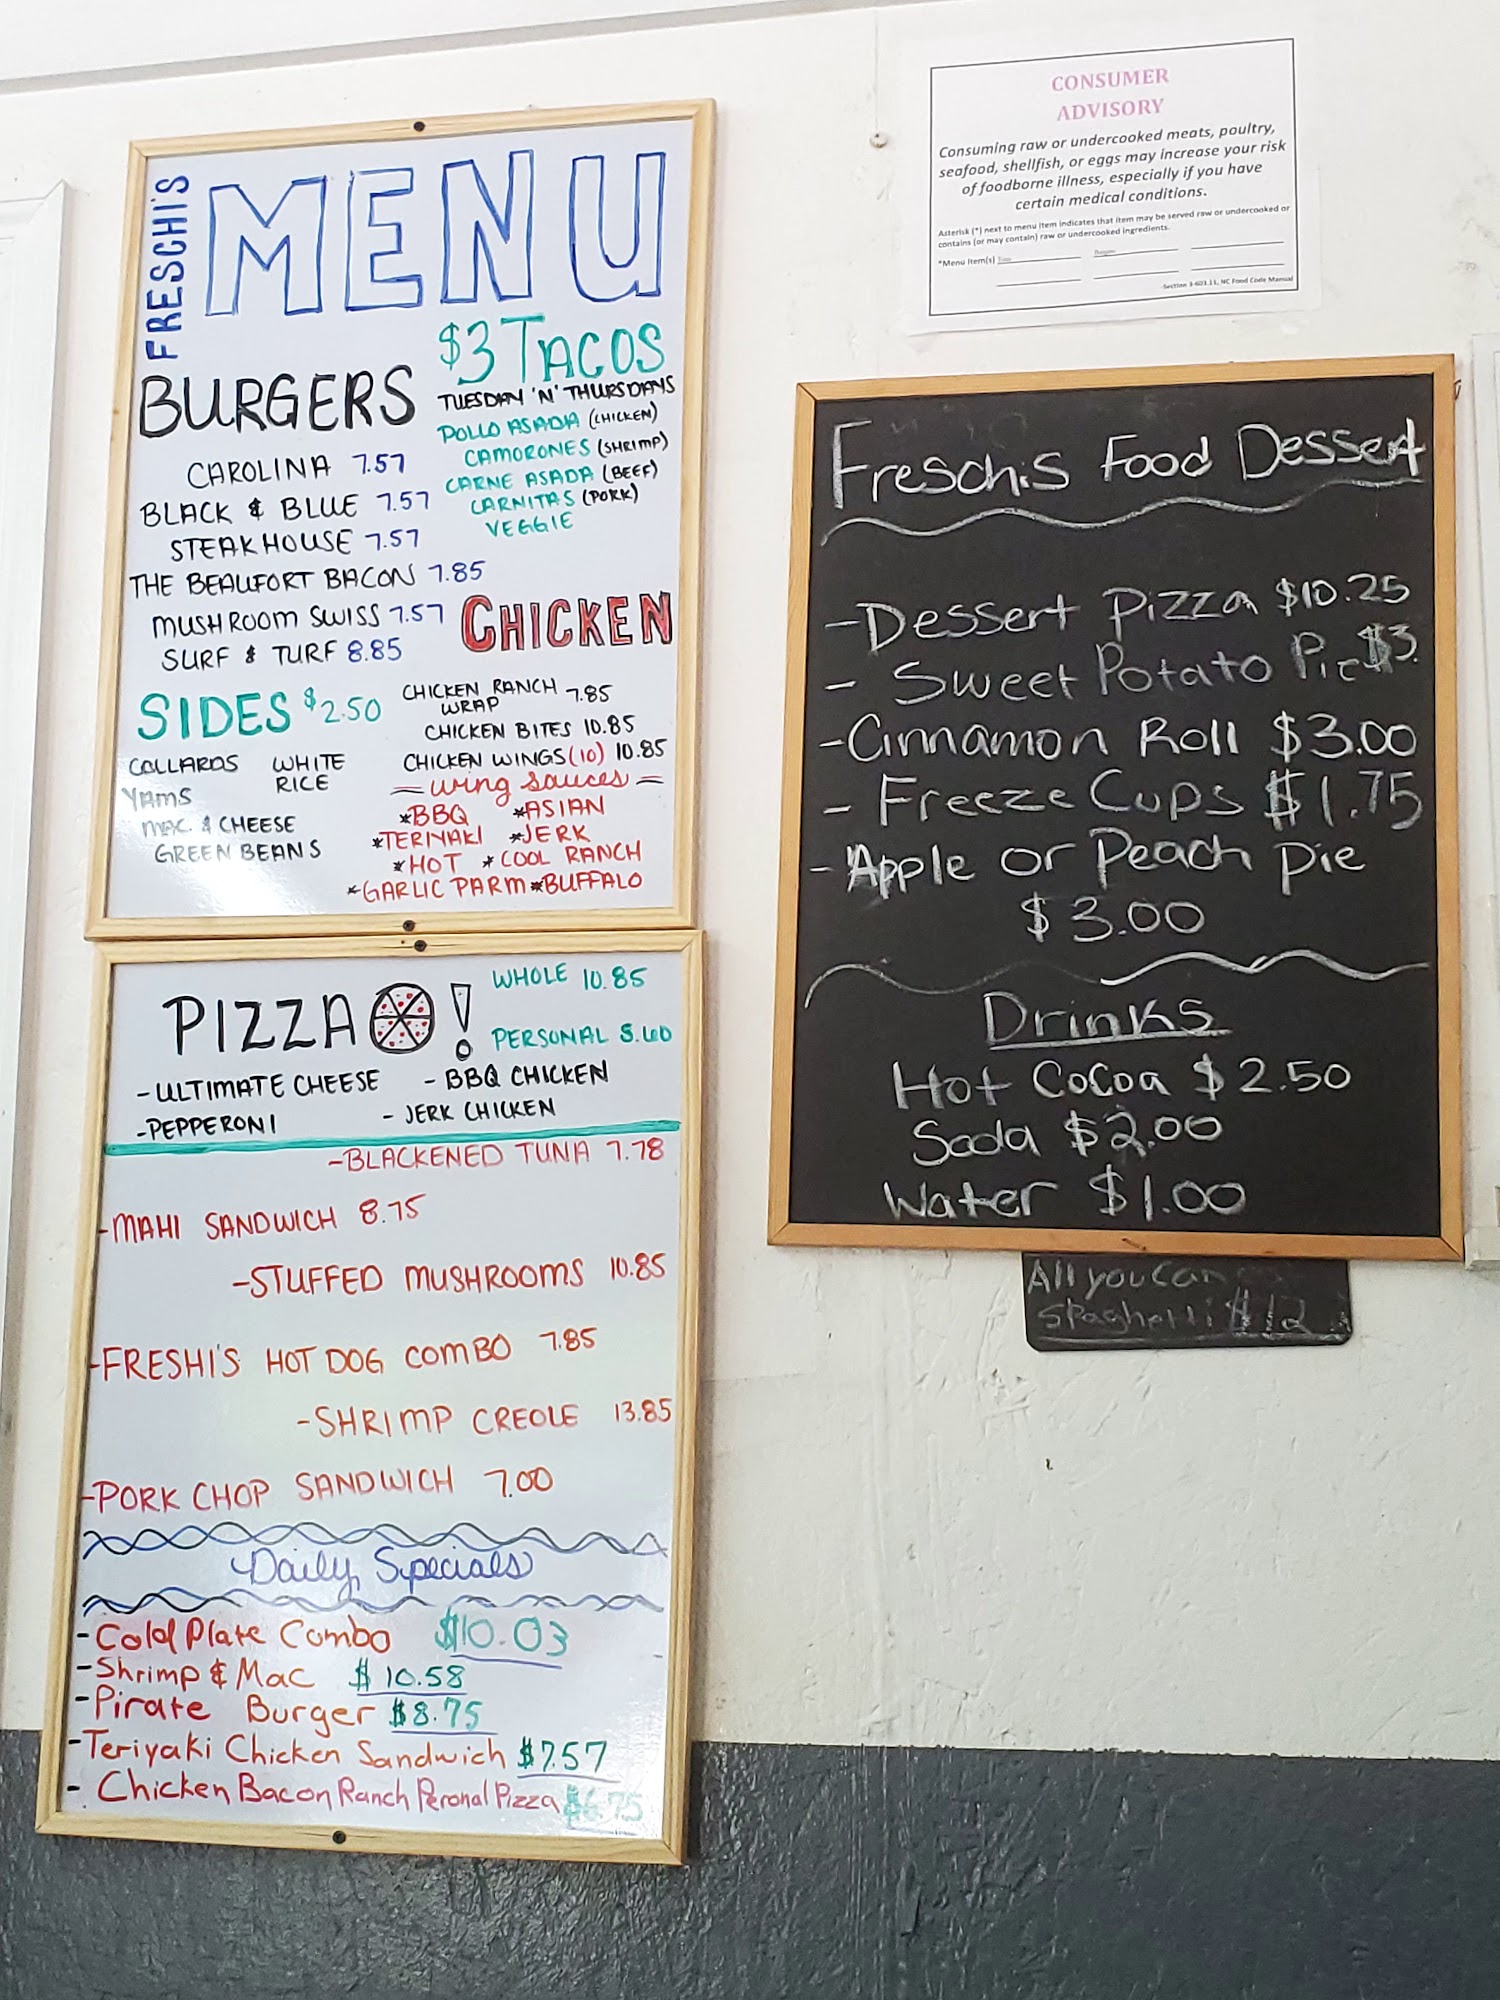 FRESCHI'S
MENU
BURGERS
CAROLINA 7.57
BLACK & BLUE 7.57
STEAKHOUSE 7.57
THE BEAUFORT BACON 7.85
MUSHROOM SWISS 7.57
SURF & TURF 8.85
$3 TACOS
TUESDAY 'N' THURSDAYS
POLLO ASADA (CHICKEN)
CAMORONES (SHRIMP)
CARNE ASADA (BEEF)
CARNITAS (PORK)
VEGGIE
SIDES $2.50
COLLARDS WHITE
RICE
YAMS
MAC. & CHEESE
GREEN BEANS
CHICKEN
CHICKEN RANCH 7.85
WRAP
CHICKEN BITES 10.85
CHICKEN WINGS (10) 10.85
wing sauces
*BBQ *ASIAN
*TERIYAKI *JERK
*HOT *COOL RANCH
*GARLIC PARM *BUFFALO
PIZZA !
WHOLE 10.85
PERSONAL 5.60
-ULTIMATE CHEESE -BBQ CHICKEN
-PEPPERONI -JERK CHICKEN
-BLACKENED TUNA 7.78
-MAHI SANDWICH 8.75
-STUFFED MUSHROOMS 10.85
-FRESHI'S HOT DOG COMBO 7.85
-SHRIMP CREOLE 13.85
-PORK CHOP SANDWICH 7.00
Daily Specials
-Cold Plate Combo $10.03
-Shrimp & Mac $10.58
-Pirate Burger $8.75
-Teriyaki Chicken Sandwich $7.57
- Chicken Bacon Ranch Peronal Pizza $6.75
CONSUMER
ADVISORY
Consuming raw or undercooked meats, poultry,
seafood, shellfish, or eggs may increase your risk
of foodborne illness, especially if you have
certain medical conditions.
Asterisk (*) next to menu item indicates that item may be served raw or undercooked or
contains (or may contain) raw or undercooked ingredients.
*Menu Item(s)
-Section 3-603.11, NC Food Code Manual
Freschis Food Dessert
-Dessert Pizza $10.25
- Sweet Potato Pie $3.
-Cinnamon Roll $3.00
- Freeze Cups $1.75
- Apple or Peach pie
$3.00
Drinks
Hot Cocoa $2.50
Soda $2.00
Water $1.00
All you can
Spaghetti $12